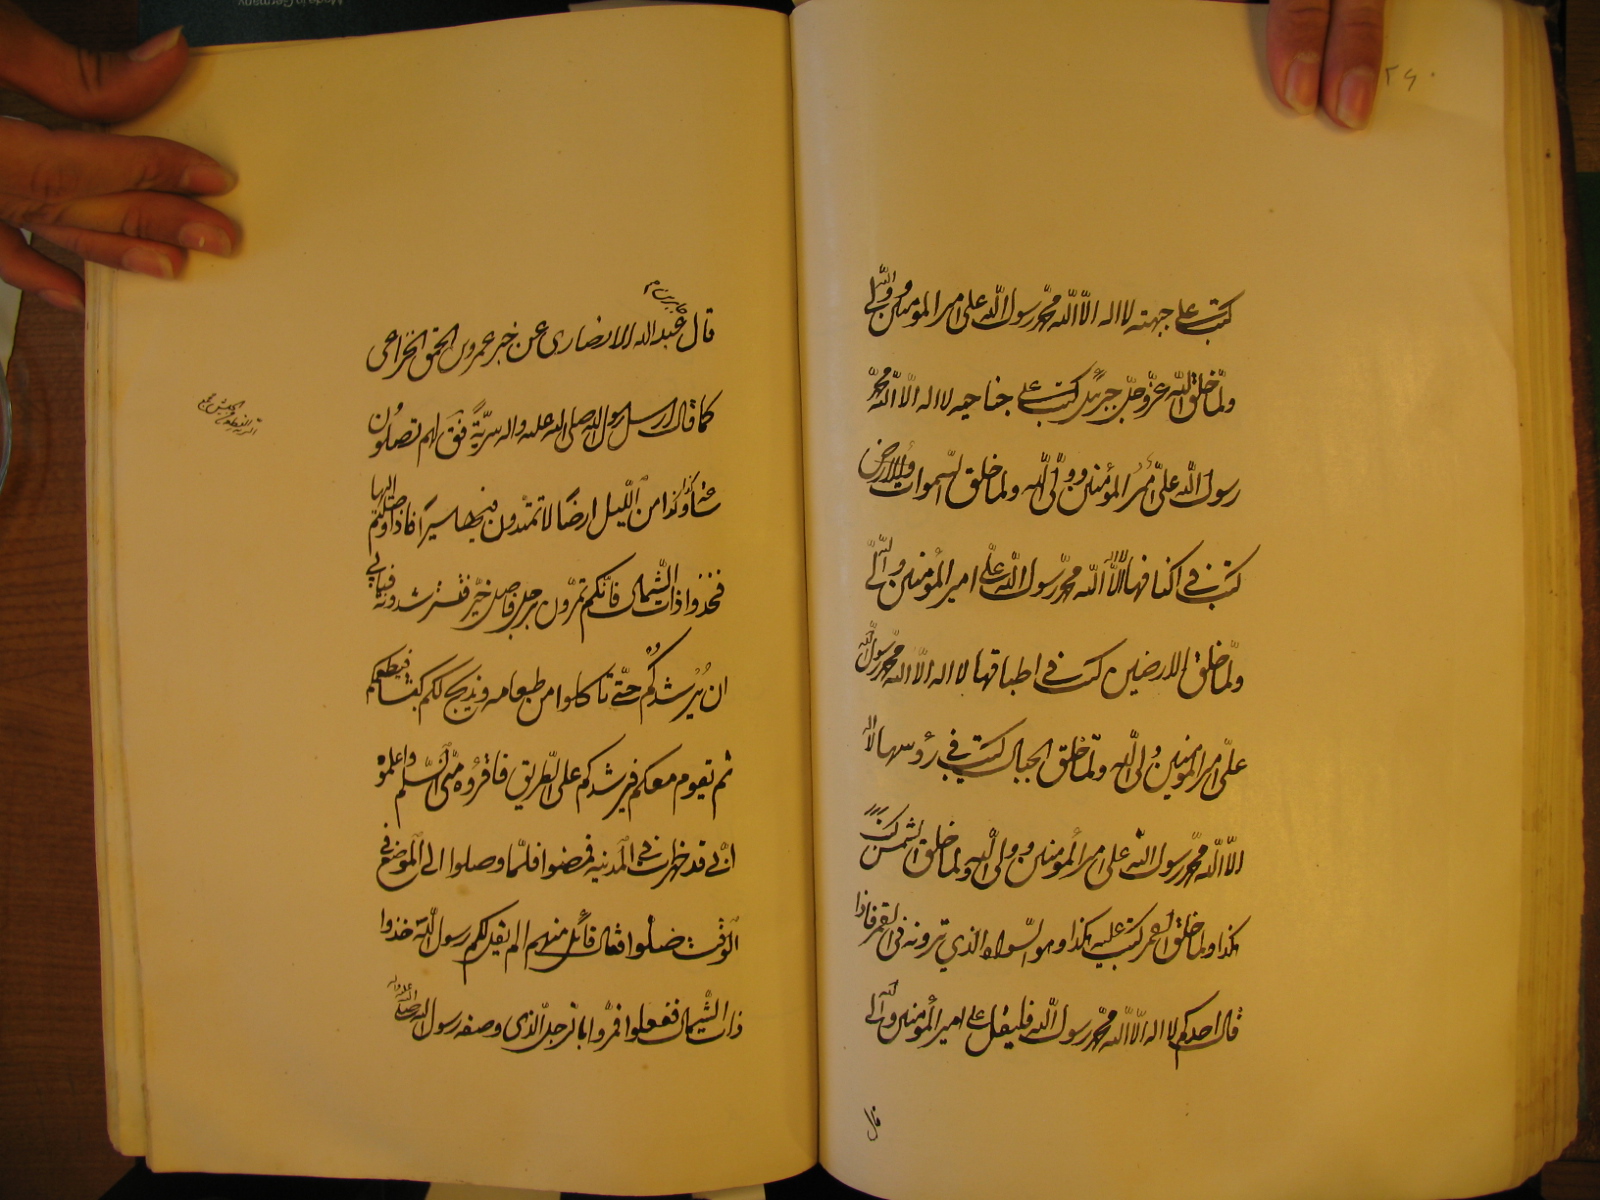 ۲۶۰
كتب على جبهته لا اله الا الله محمد رسول الله على امير المؤمنين ولى الله
ولما خلق الله عز وجل جبرئيل كتب على جناحيه لا اله الا الله محمد
رسول الله على امير المؤمنين وولى الله ولما خلق السموات والارض
كتب فى اكنافها لا اله الا الله محمد رسول الله على امير المؤمنين ولى الله
ولما خلق الارضين كتب فى اطباقها لا اله الا الله محمد رسول الله
على امير المؤمنين ولى الله ولما خلق الجبال كتب فى رؤسها لا اله
الا الله محمد رسول الله على امير المؤمنين وولى الله ولما خلق الشمس كتب
هكذا ولما خلق القمر كتب عليه هكذا وهو السواد الذي ترونه فى القمر فاذا
قال احدكم لا اله الا الله محمد رسول الله فليقل على امير المؤمنين ولى الله
قال
جابر بن
قال عبد الله الانصارى عن خبر عمرو بن الحمق الخزاعى
كما قال ارسل رسول الله صلى الله عليه واله سرية فقال لهم تصلون
ساعة كذا وكذا من الليل ارضا لا تهتدون فيها سيرا فاذا وصلتم اليها
فخذوا ذات الشمال فانكم تمرون برجل فاضل خير فتسترشدونه فيابى
ان يرشدكم حتى تاكلوا من طعامه ويذبح لكم كبشا فيطعمكم
ثم يقوم معكم فيرشدكم على الطريق فاقرؤه منى السلم واعلموه
انى قد ظهرت فى المدينه فمضوا فلما وصلوا الى الموضع فى
الوقت ضلوا فقال قائل منهم الم يقل لكم رسول الله خذوا
ذات الشمال ففعلوا فمروا بالرجل الذى وصفه رسول الله صلى الله عليه واله